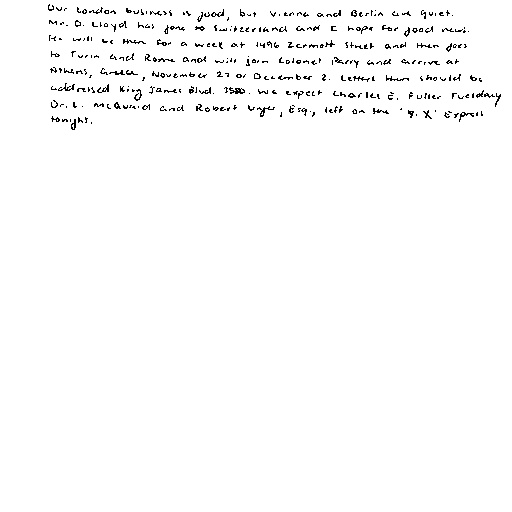 Our London business is good, but Vienna and Berlin are quiet.
Mr. D. Lloyd has gone to Switzerland and I hope for good news.
He will be there for a week at 1496 Zermott Street and then goes
to Turin and Rome and will join Colonel Parry and arrive at
Athens, Greece, November 27 or December 2. Letters there should be
addressed King James Blvd. 3580. We expect Charles E. Fuller Tuesday
Dr. L. McQuaid and Robert Unger, Esq., left on the "Y. X" Express
tonight.